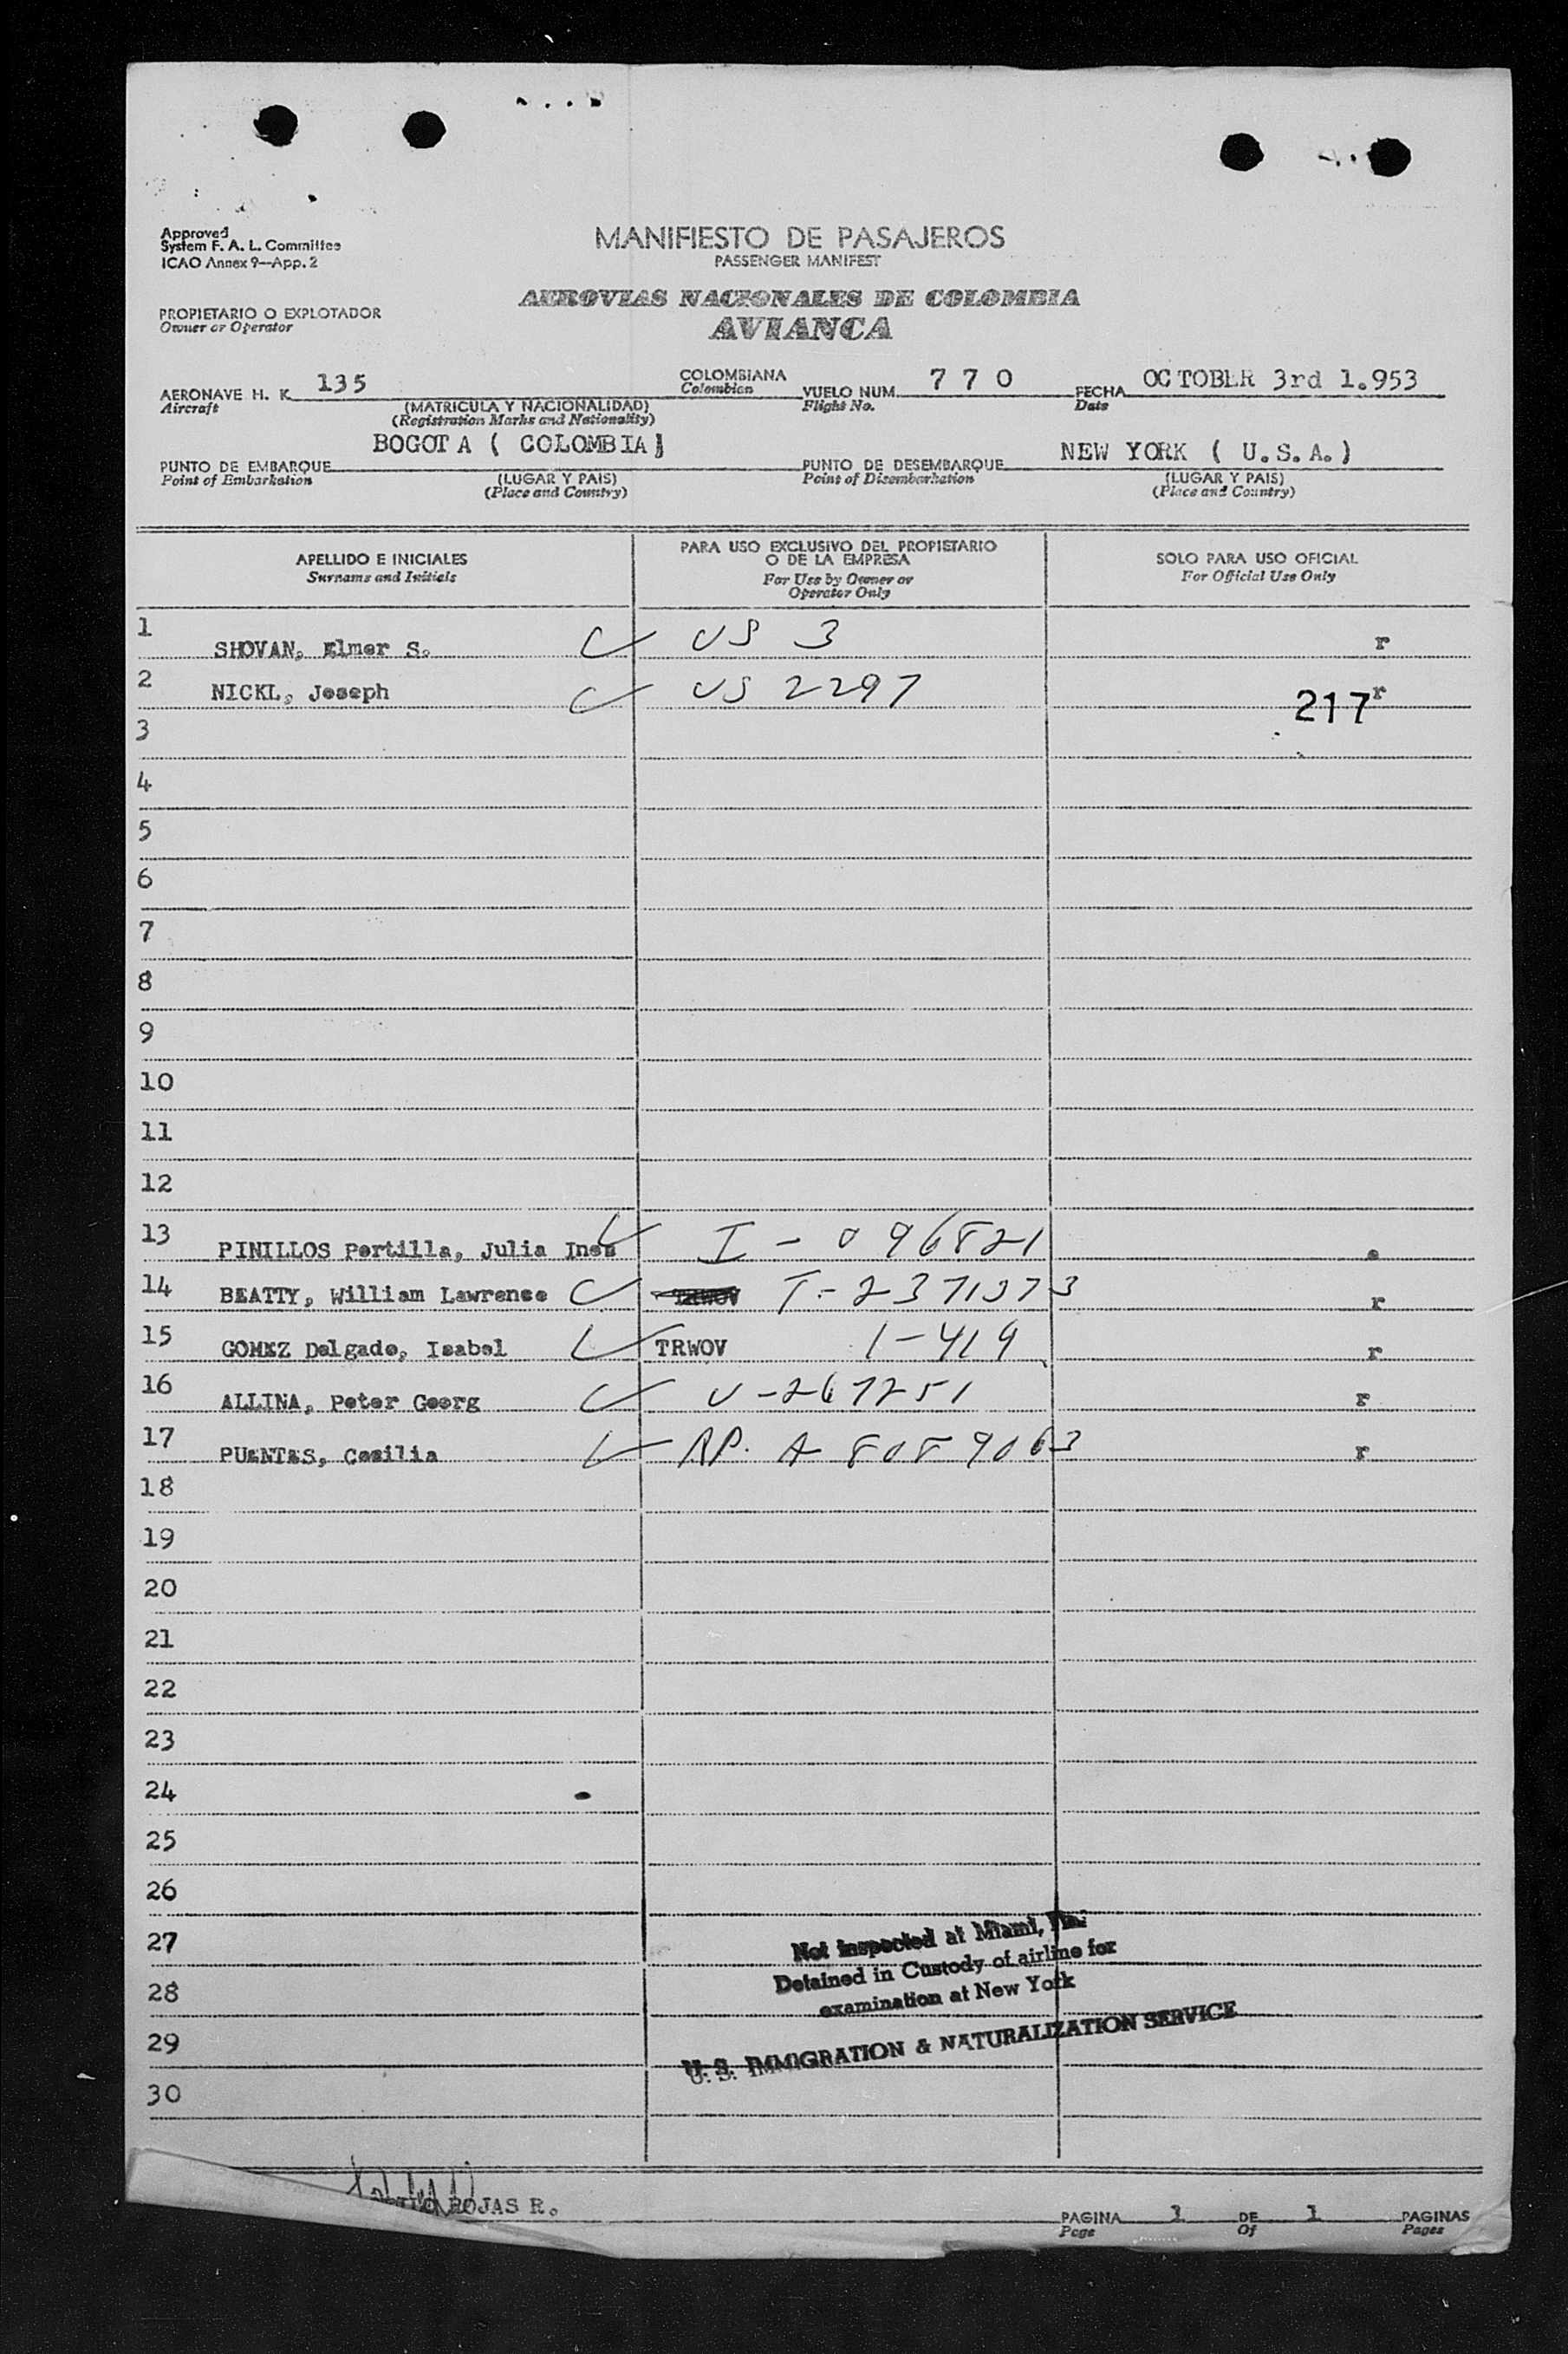 Approved
System F. A. L. Committee
ICAO Annex 9—App. 2
MANIFIESTO DE PASAJEROS
PASSENGER MANIFEST
PROPIETARIO O EXPLOTADOR
Owner or Operator
AEROVIAS NACIONALES DE COLOMBIA
AVIANCA
AERONAVE H. K. 135 COLOMBIANA VUELO NUM. 7 7 0 FECHA OCTOBER 3rd 1.953
Aircraft (MATRICULA Y NACIONALIDAD) Colombian Flight No. Date
(Registration Marks and Nationality)
PUNTO DE EMBARQUE BOGOTA ( COLOMBIA) PUNTO DE DESEMBARQUE NEW YORK ( U.S.A.)
Point of Embarkation (LUGAR Y PAIS) Point of Disembarkation (LUGAR Y PAIS)
(Place and Country) (Place and Country)
APELLIDO E INICIALES PARA USO EXCLUSIVO DEL PROPIETARIO SOLO PARA USO OFICIAL
O DE LA EMPRESA
Surname and Initials For Use by Owner or For Official Use Only
Operator Only
1 SHOVAN, Elmer S. US 3 r
2 NICKL, Joseph US 2297 r
217
3
4
5
6
7
8
9
10
11
12
13 PINILLOS Portilla, Julia Ines I - 096821
14 BEATTY, William Lawrence T-2371373 r
15 GOMEZ Delgado, Isabel TRWOV 1-419 r
16 ALLINA, Peter Georg V-267251 r
17 PUENTES, Cecilia RP. A 8089063 r
18
19
20
21
22
23
24
25
26
27
28
29
30
Not inspected at Miami, Fla.
Detained in Custody of airline for
examination at New York
U. S. IMMIGRATION & NATURALIZATION SERVICE
ROJAS R.
PAGINA 1 DE 1 PAGINAS
Page Of Pages